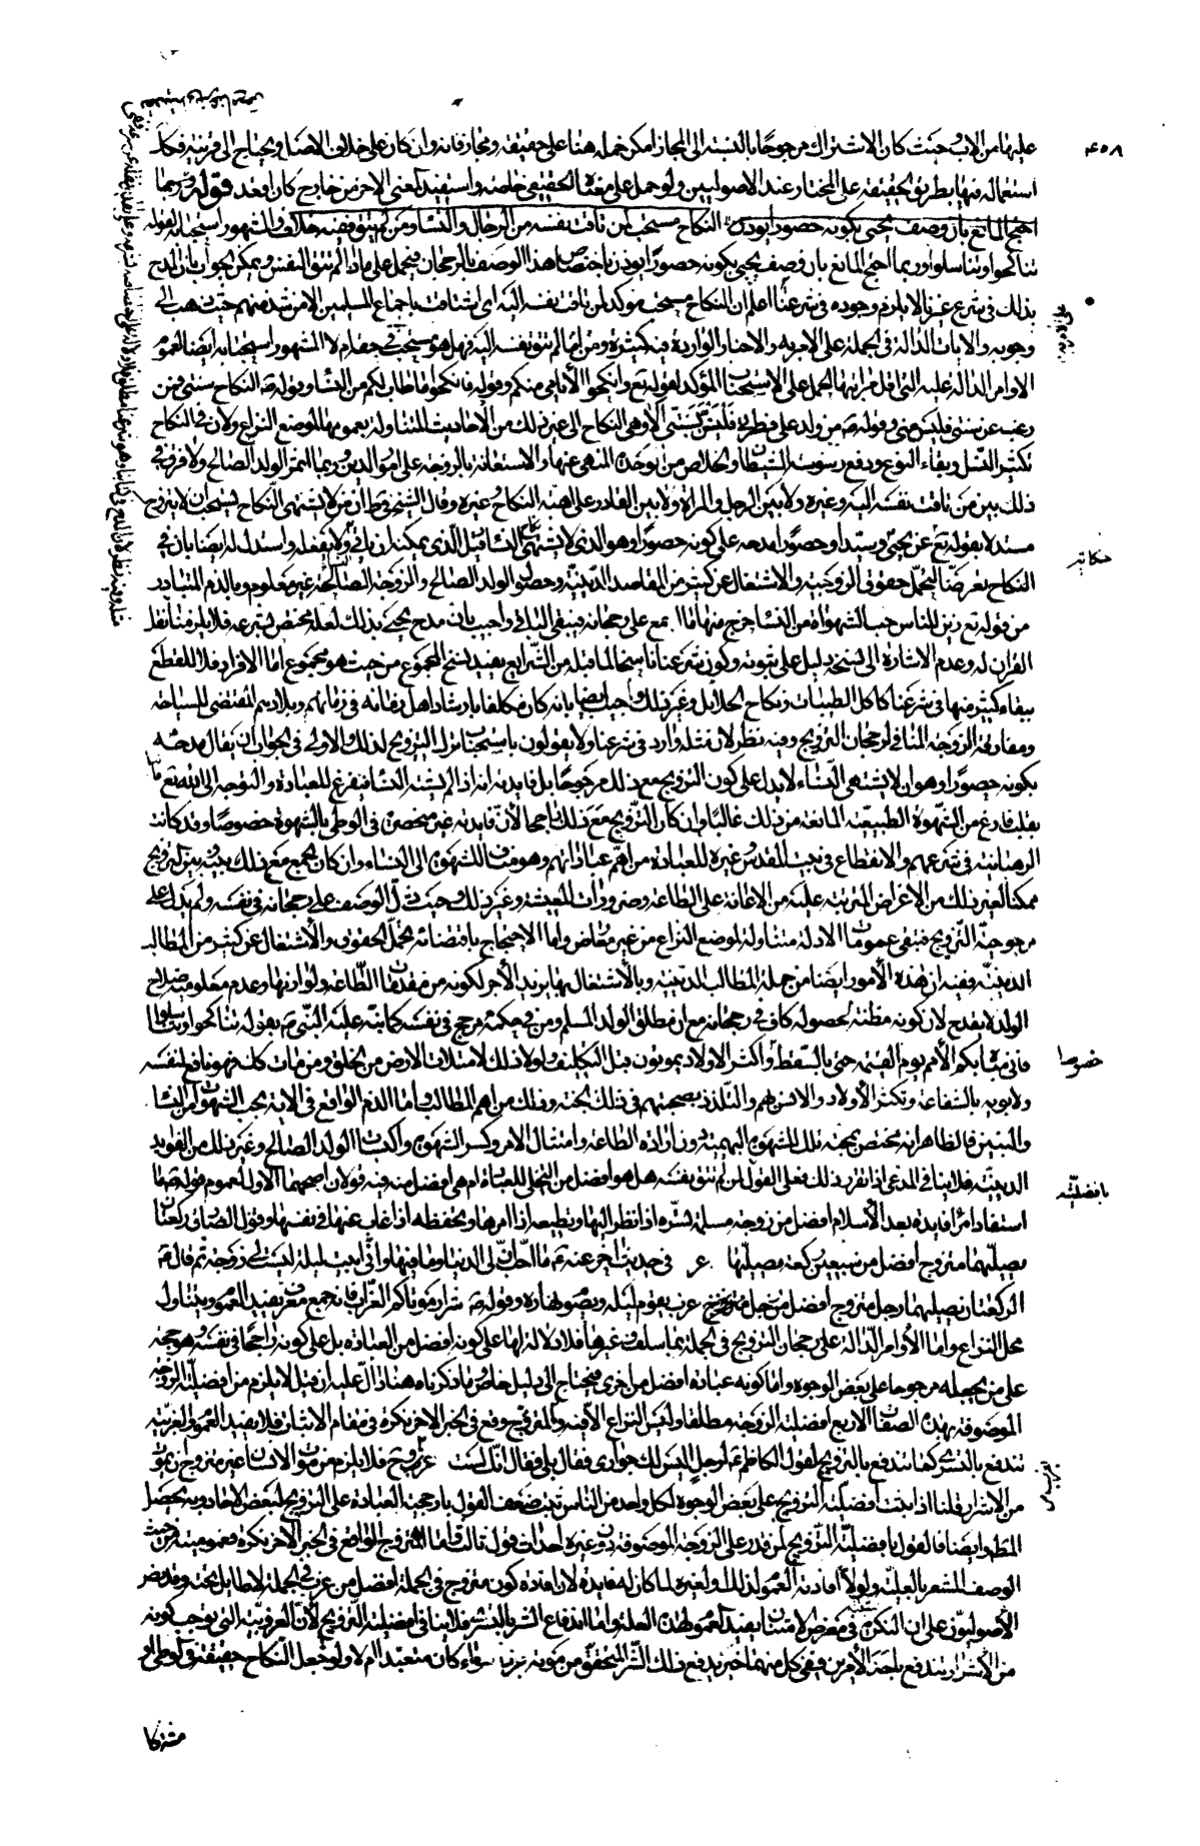 عليها من الاب حيث كان الاشتراك مرجوحا بالنسبة الى المجاز امكن حمله هنا على حقيقته ومجازه فانه وان كان على خلاف الاصل ويحتاج الى قرينة فكان
٤٥٨
استعماله فيها بطريق الحقيقة على المختار وعند الاصوليين ولو حمل على معناه الحقيقي خاصة واستفيد المعنى الاخر من خارج كان اقعد قوله وربما
احتج المانع بان وصف يحيى بكونه حصورا يؤذن النكاح مستحب لمن تاقت نفسه من الرجال والنساء ومن لم يتق ففيه خلاف والمشهور استحبابه لقوله
تناكحوا وتناسلوا وربما احتج المانع بان وصف يحيى بكونه حصورا يؤذن باختصاص هذا الوصف بالرجحان فيحمل على ما اذا لم تتق النفس ويمكن الجواب بان المدح
بذلك في شرع غيرنا لا يلزم وجوده في شرعنا اعلم ان النكاح مستحب مؤكد لمن تاقت نفسه اليه اي اشتاقت باجماع المسلمين الا من شذ منهم حيث ذهب الى
وجوبه والايات الدالة في الجملة على الامر به والاخبار الواردة فيه كثيرة ومن لم تتق نفسه اليه فهل هو مستحب في حقه ام لا المشهور استحبابه ايضا لعموم
الاوامر الدالة عليه التي اقل مراتبها الحمل على الاستحباب المؤكد لقوله تع وانكحوا الايامى منكم وقوله فانكحوا ما طاب لكم من النساء وقوله ص النكاح سنتي فمن
رغب عن سنتي فليس مني وقوله ص من ولد على فطرتي فليستن بسنتي الا وهي النكاح الى غير ذلك من الاحاديث المتناولة بعمومها لموضع النزاع ولان في النكاح
تكثير النسل وبقاء النوع ودفع وسوسة الشيطان والخلاص من الوحدة المنهي عنها والاستعانة بالزوجة على امور الدين وربما اثمر الولد الصالح ولا فرق في
ذلك بين من تاقت نفسه اليه وغيره ولا بين الرجل والمراة ولا بين القادر على اهبة النكاح وغيره وقال الشيخ في ط ان من لا يشتهي النكاح يستحب ان لا يتزوج
مستدلا بقوله تع عن يحيى وسيدا وحصورا مدحه على كونه حصورا وهو الذي لا يشتهي النساء وقيل الذي يمكنه ان ياتي ولا يفعله واستدل له ايضا بان في
النكاح تعرضا لتحمل حقوق الزوجية والاشتغال عن كثير من المقاصد الدينية وحصول الولد الصالح والزوجة الصالحة غير معلوم وبالذم المتبادر
حكاية
من قوله تع زين للناس حب الشهوات من النساء خرج منها ما اجمع على رجحانه فيبقى الباقي واجيب بان مدح يحيى بذلك لعله مختص بشرعه فلا يلزم مثله نقل
القران له وعدم الاشارة الى نسخه دليل على ثبوته وكون شرعنا ناسخا لما قبله من الشرايع يفيد نسخ المجموع من حيث هو مجموع اما الافراد فلا للقطع
ببقاء كثير منها في شرعنا كاكل الطيبات ونكاح الحلايل وغير ذلك واجيب ايضا بانه كان مكلفا بارشاد اهل زمانه في زمانهم وبلادهم المقتضي للسياحة
ومفارقة الزوجة المنافي لرجحان التزويج وفيه نظر لان مثله وارد في شرعنا ولا يقولون باستحباب ترك التزويج لذلك والاولى في الجواب ان يقال مدحه
بكونه حصورا وهو ان لا يشتهي النساء لا يدل على كون التزويج مع ذلك مرجوحا بل فايدته انه اذا لم يشته النساء يتفرغ للعبادة والتوجه الى الله تع
بقلب فارغ من الشهوة الطبيعية المانعة من ذلك غالبا وان كان التزويج مع ذلك راجحا لان فايدته غير منحصرة في الوطي بالشهوة خصوصا وقد كانت
الرهبانية في شرعهم والانقطاع في بيت المقدس وغيره للعبادة من اهم عباداتهم وهو مناف للشهوة الى النساء وان كان الجمع مع ذلك بينه وبين التزويج
ممكنا لغير ذلك من الاغراض المترتبة عليه من الاعانة على الطاعة وضرورات المعيشة وغير ذلك وحيث دل الوصف على رجحانه في نفسه ولم يدل على
مرجوحية التزويج فتبقى عمومات الادلة متناولة لموضع النزاع من غير معارض واما الاحتجاج باقتضائه تحمل الحقوق والاشتغال عن كثير من المطالب
الدينية ففيه ان هذه الامور ايضا من جملة المطالب الدينية وبالاشتغال بها يزيد الاجر لكونه من مقدمات الطاعة ولوازمها وعدم معلومية صلاح
الولد لا يقدح لان كونه مظنة لحصوله كاف في رجحانه مع ان مطلق الولد المسلم ومن في حكمه مرجح في نفسه كما نبه عليه النبي ص بقوله تناكحوا وتناسلوا
فاني مباه بكم الامم يوم القيمة حتى بالسقط واكثر الاولاد يموتون قبل التكليف ولولا ذلك لامتلات الارض من الخلق ومن مات كان منهم نافع لنفسه
خصوصا
ولابويه بالشفاعة وتكثر الاولاد والانس بهم والتلذذ بصحبتهم في ذلك الجنة وذلك من اهم المطالب واما الذم الواقع في الاية بحب الشهوات من النساء
والبنين فالظاهر انه مختص بمحبة تلك للشهوة البهيمية دون ارادة الطاعة وامتثال الامر وكسر الشهوة واكتساب الولد الصالح وغير ذلك من الفوايد
الدينية فلا ينافي المدعى اذا تقرر ذلك فعلى القول لمن لم تتق نفسه هل هو افضل من التخلي للعبادة ام هي افضل منه فيه قولان اصحهما الاول لعموم قوله ص ما
بافضليته
استفاد امرؤ فايدة بعد الاسلام افضل من زوجة مسلمة تسره اذا نظر اليها وتطيعه اذا امرها وتحفظه اذا غاب عنها في نفسها وقول الصادق ركعتان
يصليهما متزوج افضل من سبعين ركعة يصليها عزب في حديث اخر عنه ع ما احب ان لي الدنيا وما فيها واني ابيت ليلة ليست لي زوجة ثم قال ع
الركعتان يصليهما رجل متزوج افضل من رجل عزب يقوم ليله ويصوم نهاره وقوله ص شرار موتاكم العزاب فانه جمع معرف يفيد العموم ويتناول
محل النزاع واما الاوامر الدالة على رجحان التزويج في الجملة بما سلف وغيرها فلا دلالة لها على كونه افضل من العبادة بل على كونه راجحا في نفسه وهو حجة
على من يجعله مرجوحا على بعض الوجوه واما كونه عبادة افضل من اخرى فيحتاج الى دليل خاص وما ذكرناه هنا دال عليه ان قيل لا يلزم من افضلية الزوجة
الموصوفة بهذه الصفات الاربع افضلية الزوجة مطلقا وليس النزاع الا فيه والمتزوج وقع في الخبر الاخر نكرة في مقام الاثبات فلا يفيد العموم والعزبية
تندفع بالتسري كما تندفع بالتزويج لقول الكاظم ع لرجل اليس لك جواري فقال بلى فقال انك لست بعزب وح فلا يلزم من موت الانسان غير متزوج ان يكون
من الاشرار قلنا اذا ثبت افضلية التزويج على بعض الوجوه لكل واحد من الناس ثبت ضعف القول بارجحية العبادة على التزويج لبعض الافراد وبه يحصل
المطلوب ايضا فالقول بافضلية التزويج لمن قدر على الزوجة الموصوفة دون غيره احداث قول ثالث واما المتزوج الواقع في الخبر الاخر نكرة فعموميته من حيث
الوصف المشعر بالعلية ولولا افادته العموم لذلك ولغيره لما كان له فايدة لان افادة كون متزوج في الجملة افضل من عزب في الجملة لا طايل تحته وقد نص
الاصوليون على ان النكرة في معرض الامتنان يفيد العموم لهذه العلة واما اندفاع الشر بالتسري فلا ينافي افضلية التزويج لان العزوبية التي توجب كونه
من الاشرار تندفع باحد الامرين ففي كل منهما خير يدفع ذلك الشر المتحقق من موته عزبا سواء كان متعبدا ام لا ولو جعل النكاح حقيقة في الوطي او
مشتركا